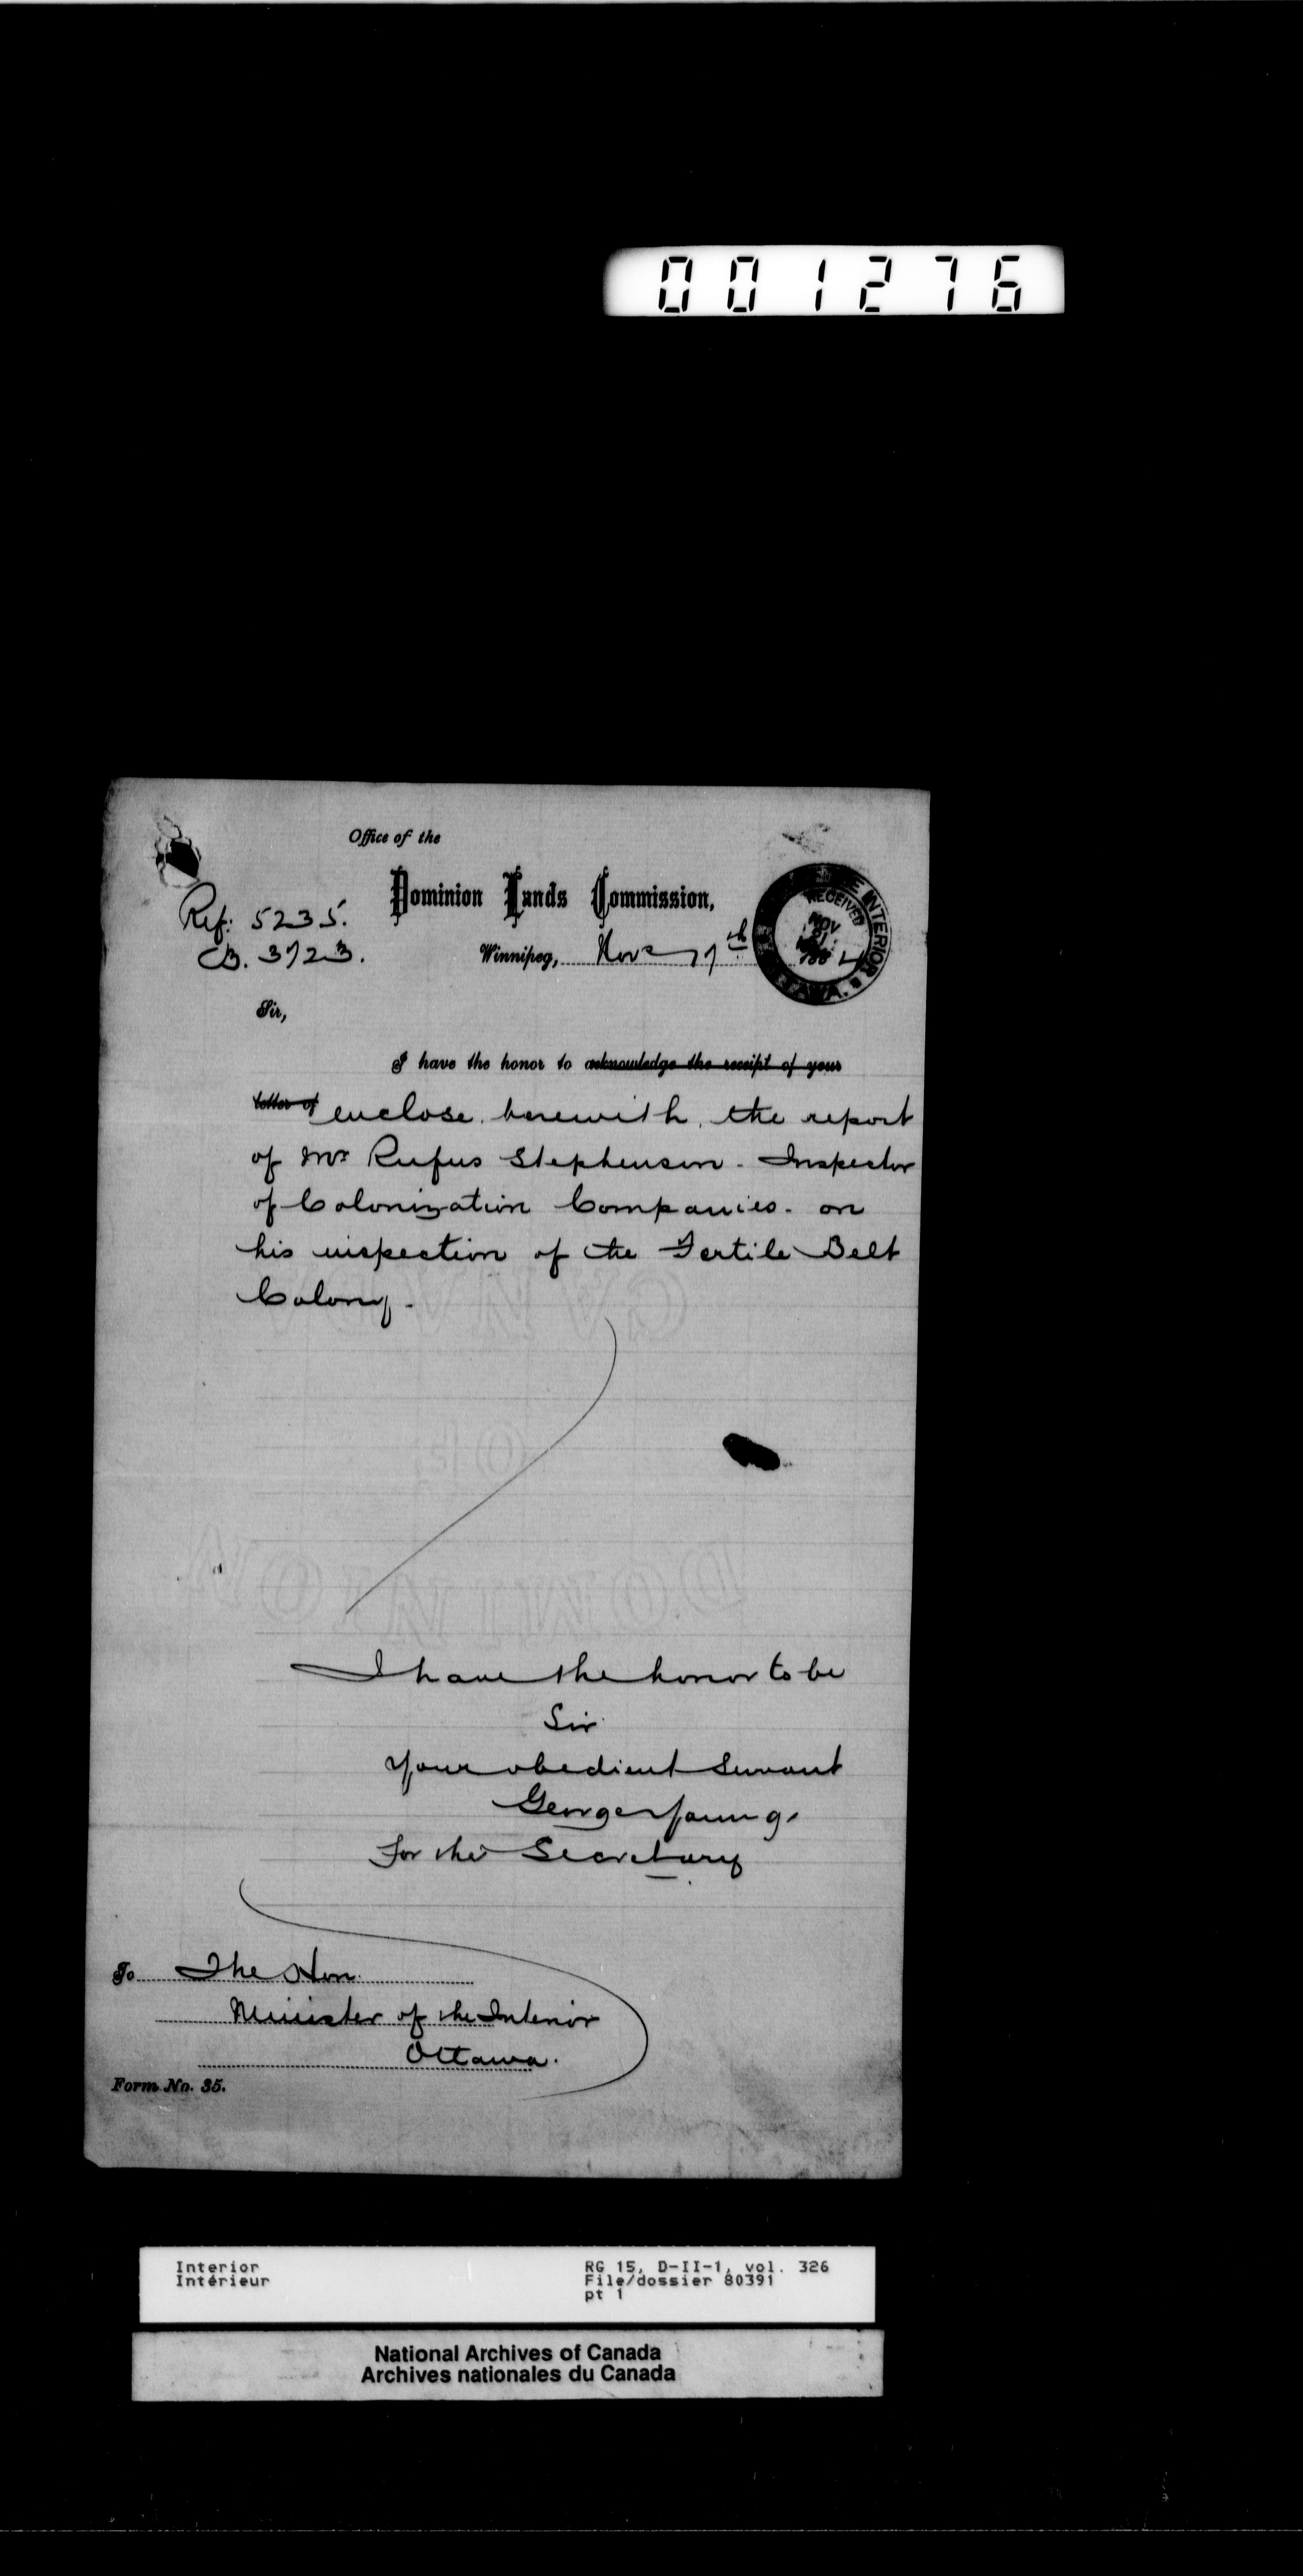 001276
Office of the
Dominion Lands Commission,
Ref: 5235.
CB. 3723.
Winnipeg, Nov 17th
RECEIVED
NOV
INTERIOR
Sir,
I have the honor to acknowledge the receipt of your
letter of enclose herewith, the report
of Mr Rufus Stephenson - Inspector
of Colonization Companies - on
his inspection of the Fertile Belt
Colony -
CANADA
OF
DOMINION
I have the honor to be
Sir
Your obedient Servant
George Young,
For the Secretary
To The Hon.
Minister of the Interior
Ottawa.
Form No. 35.
Interior
Intérieur
RG 15, D-II-1, vol. 326
File/dossier 80391
pt 1
National Archives of Canada
Archives nationales du Canada